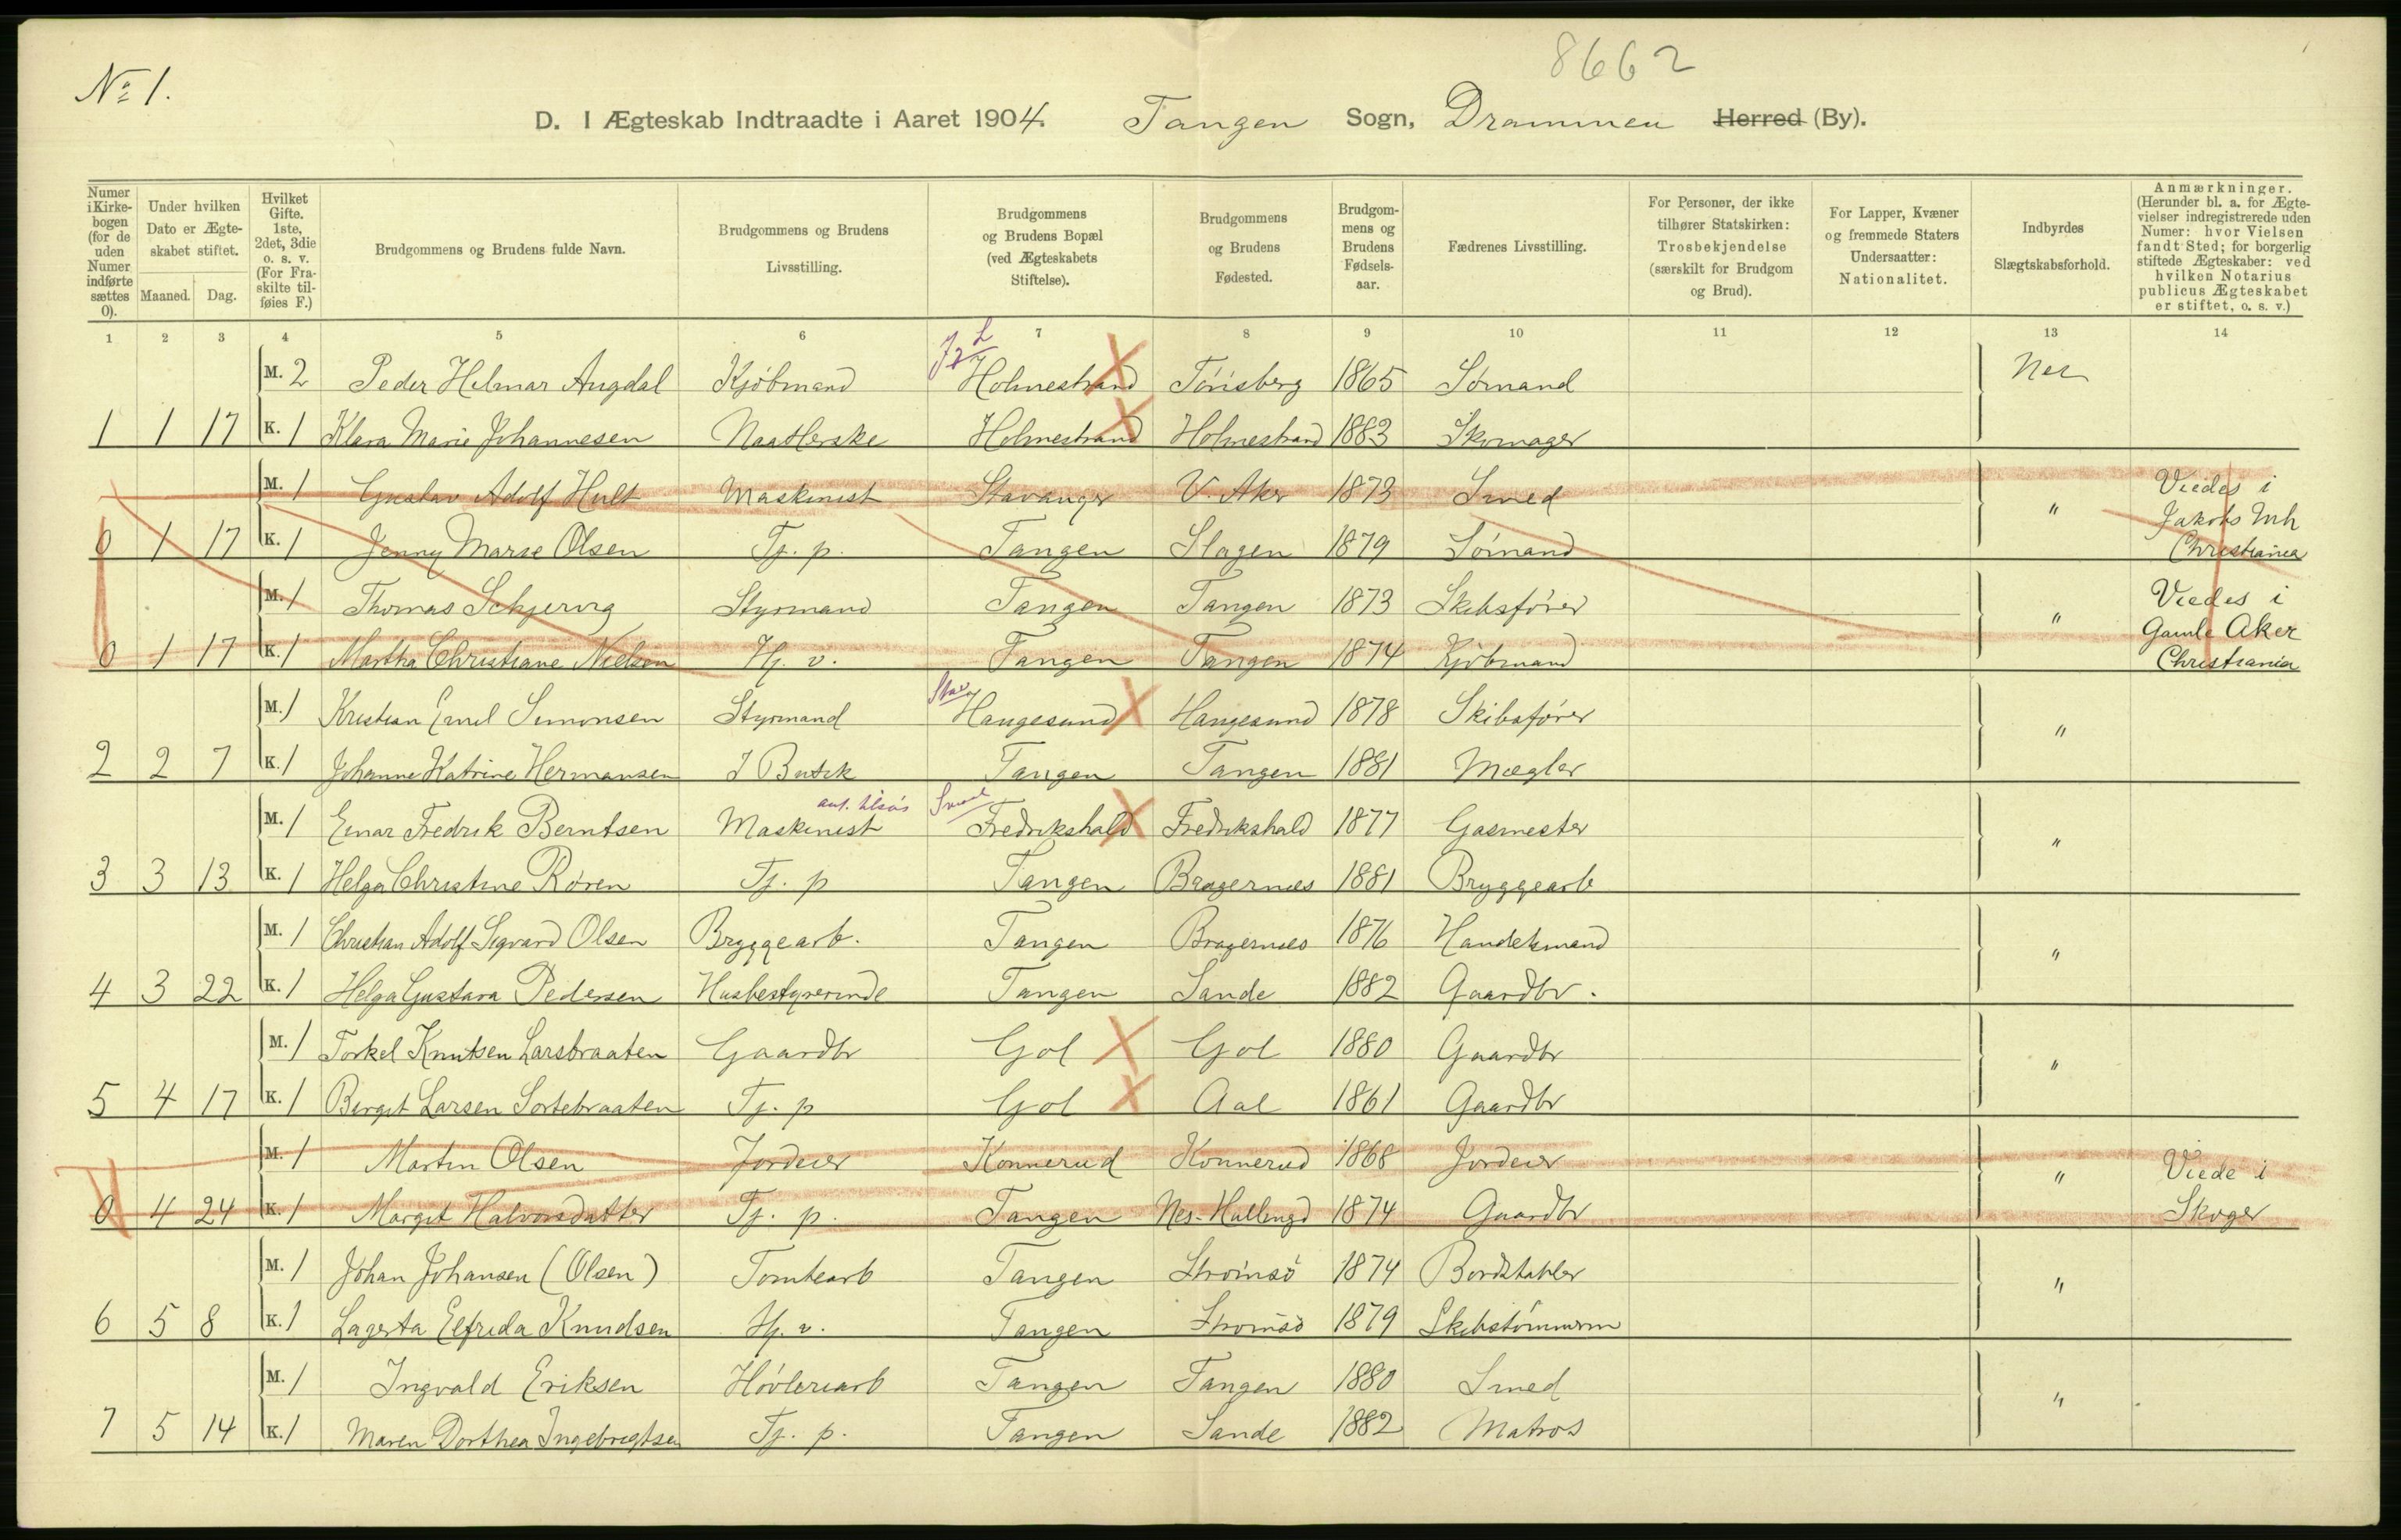 8662
No 1.
D. I Ægteskab Indtraadte i Aaret 1904. Tangen Sogn, Drammen Herred (By).
Numer i Kirkebogen (for de uden Numer indførte sættes 0).
Under hvilken Dato er Ægteskabet stiftet.
Maaned. Dag.
Hvilket Gifte. 1ste, 2det, 3die o. s. v. (For Fraskilte tilføies F.)
Brudgommens og Brudens fulde Navn.
Brudgommens og Brudens Livsstilling.
Brudgommens og Brudens Bopæl (ved Ægteskabets Stiftelse).
Brudgommens og Brudens Fødested.
Brudgommens og Brudens Fødselsaar.
Fædrenes Livsstilling.
For Personer, der ikke tilhører Statskirken: Trosbekjendelse (særskilt for Brudgom og Brud).
For Lapper, Kvæner og fremmede Staters Undersaatter: Nationalitet.
Indbyrdes Slægtskabsforhold.
Anmærkninger. (Herunder bl. a. for Ægtevielser indregistrerede uden Numer: hvor Vielsen fandt Sted; for borgerlig stiftede Ægteskaber: ved hvilken Notarius publicus Ægteskabet er stiftet, o. s. v.)
1 2 3 4 5 6 7 8 9 10 11 12 13 14
M. 2 Peder Hilmar Augdal Kjøbmand Holmestrand Tønsberg 1865 Sømand Nei
1 1 17 K. 1 Klara Marie Johannesen Naatlerske Holmestrand Holmestrand 1883 Skomager
M. 1 Gustav Adolf Hult Maskinist Stavanger V. Aker 1873 Smed " Viedes i
0 1 17 K. 1 Jenny Marie Olsen Tj. p. Tangen Slagen 1879 Sømand Jakobs Mh Christiania
M. 1 Thomas Schjervig Styrmand Tangen Tangen 1873 Skibsfører " Viedes i
0 1 17 K. 1 Martha Christiane Nielsen Hj. v. Tangen Tangen 1874 Kjøbmand Gamle Aker Christiania
M. 1 Kristian Emil Simonsen Styrmand Stav Haugesund Haugesund 1878 Skibsfører "
2 2 7 K. 1 Johanne Katrine Hermansen I Butik Tangen Tangen 1881 Mægler
M. 1 Einar Fredrik Berntsen Maskinist Fredrikshald Fredrikshald 1877 Gasmester "
3 3 13 K. 1 Helga Christine Røren Tj. p Tangen Bragernæs 1881 Bryggearb
M. 1 Christian Adolf Sigvard Olsen Bryggearb. Tangen Bragernæs 1876 Handelsmand "
4 3 22 K. 1 Helga Gustava Pedersen Husbestyrerinde Tangen Sande 1882 Gaardbr.
M. 1 Torkel Knutsen Larsbraaten Gaardbr Gol Gol 1880 Gaardbr "
5 4 17 K. 1 Birgit Larsen Sortebraaten Tj. p Gol Aal 1861 Gaardbr
M. 1 Martin Olsen Jordeier Konnerud Konnerud 1868 Jordeier " Viede i
0 4 24 K. 1 Margit Halvorsdatter Tj. p. Tangen Nes-Hallingd 1874 Gaardbr Skoger
M. 1 Johan Johansen (Olsen) Tomtearb Tangen Strømsø 1874 Bordstabler "
6 5 8 K. 1 Lagerta Elfrida Knudsen Hj. v. Tangen Strømsø 1879 Skibstømmerm
M. 1 Ingvald Eriksen Høvleriarb Tangen Tangen 1880 Smed "
7 5 14 K. 1 Maren Dorthea Ingebrigtsen Tj. p. Tangen Sande 1882 Matros